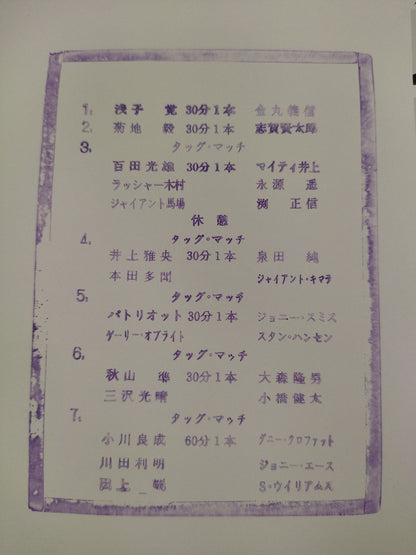 1. 浅子 覚 30分1本 金丸義信
2. 菊地 毅 30分1本 志賀賢太郎
3. タッグ・マッチ
百田光雄 30分1本 マイティ井上
ラッシャー木村 永源 遙
ジャイアント馬場 渕 正信
休憩
4. タッグ・マッチ
井上雅央 30分1本 泉田 純
本田多聞 ジャイアント・キマラ
5. タッグ・マッチ
パトリオット 30分1本 ジョニー・スミス
ゲーリー・オブライト スタン・ハンセン
6. タッグ・マッチ
秋山 準 30分1本 大森隆男
三沢光晴 小橋健太
7. タッグ・マッチ
小川良成 60分1本 ダニー・クロファット
川田利明 ジョニー・エース
田上 S・ウイリアムス